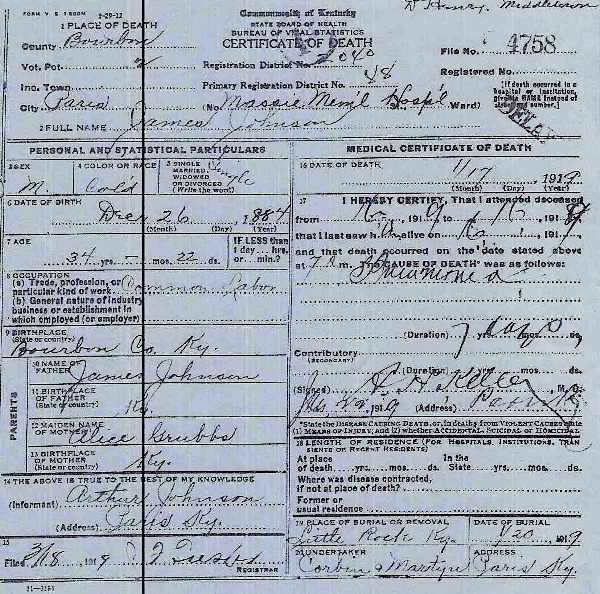 FORM V. S. 1
Commonwealth of Kentucky
D Henry. Middletown
1 PLACE OF DEATH
STATE BOARD OF HEALTH
BUREAU OF VITAL STATISTICS
CERTIFICATE OF DEATH
County Bourbon
File No. 4758
Vot. Pct
Registration District No. 2040
Registered No.
Inc. Town
Primary Registration District No. 48
[If death occurred in a hospital or institution, give its NAME instead of street and number.]
City Paris
(No. Massie Mem'l Hosp'l St. Ward)
2 FULL NAME James Johnson
PERSONAL AND STATISTICAL PARTICULARS
3 SEX
M.
4 COLOR OR RACE
Col'd
5 SINGLE MARRIED, WIDOWED OR DIVORCED (Write the word)
Single
6 DATE OF BIRTH
Dec 26 1884
(Month) (Day) (Year)
7 AGE
34 yrs. – mos. 22 ds.
IF LESS than 1 day... hrs. or... min.?
8 OCCUPATION
(a) Trade, profession, or particular kind of work Common Labor
(b) General nature of industry, business or establishment in which employed (or employer)
9 BIRTHPLACE
(State or country)
Bourbon Co. Ky
PARENTS
10 NAME OF FATHER
James Johnson
11 BIRTHPLACE OF FATHER
(State or country)
Ky.
12 MAIDEN NAME OF MOTHER
Alice Grubbs
13 BIRTHPLACE OF MOTHER
(State or country)
Ky.
14 THE ABOVE IS TRUE TO THE BEST OF MY KNOWLEDGE
(Informant) Arthur Johnson
(Address) Paris Ky.
15
Filed 3/18 1919
REGISTRAR
MEDICAL CERTIFICATE OF DEATH
16 DATE OF DEATH
1/17 1919
(Month) (Day) (Year)
17 I HEREBY CERTIFY, That I attended deceased
from 191 9 to 191 9
that I last saw h alive on 191
and that death occurred on the date stated above
at m. The CAUSE OF DEATH* was as follows:
Pneumonia
(Duration) yrs. mos. ds.
Contributory
(SECONDARY)
(Duration) yrs. mos. ds.
(Signed) A H Keller M. D.
1919 (Address) Paris Ky
*State the DISEASE CAUSING DEATH, or, in deaths from VIOLENT CAUSES state (1) MEANS OF INJURY; and (2) whether ACCIDENTAL, SUICIDAL or HOMICIDAL
18 LENGTH OF RESIDENCE (FOR HOSPITALS, INSTITUTIONS, TRANSIENTS OR RECENT RESIDENTS)
At place of death yrs. mos. ds. In the State yrs. mos. ds.
Where was disease contracted, if not at place of death?
Former or usual residence
19 PLACE OF BURIAL OR REMOVAL
Little Rock Ky.
DATE OF BURIAL
1/20 1919
20 UNDERTAKER
Corbin & Martyn
ADDRESS
Paris Ky.